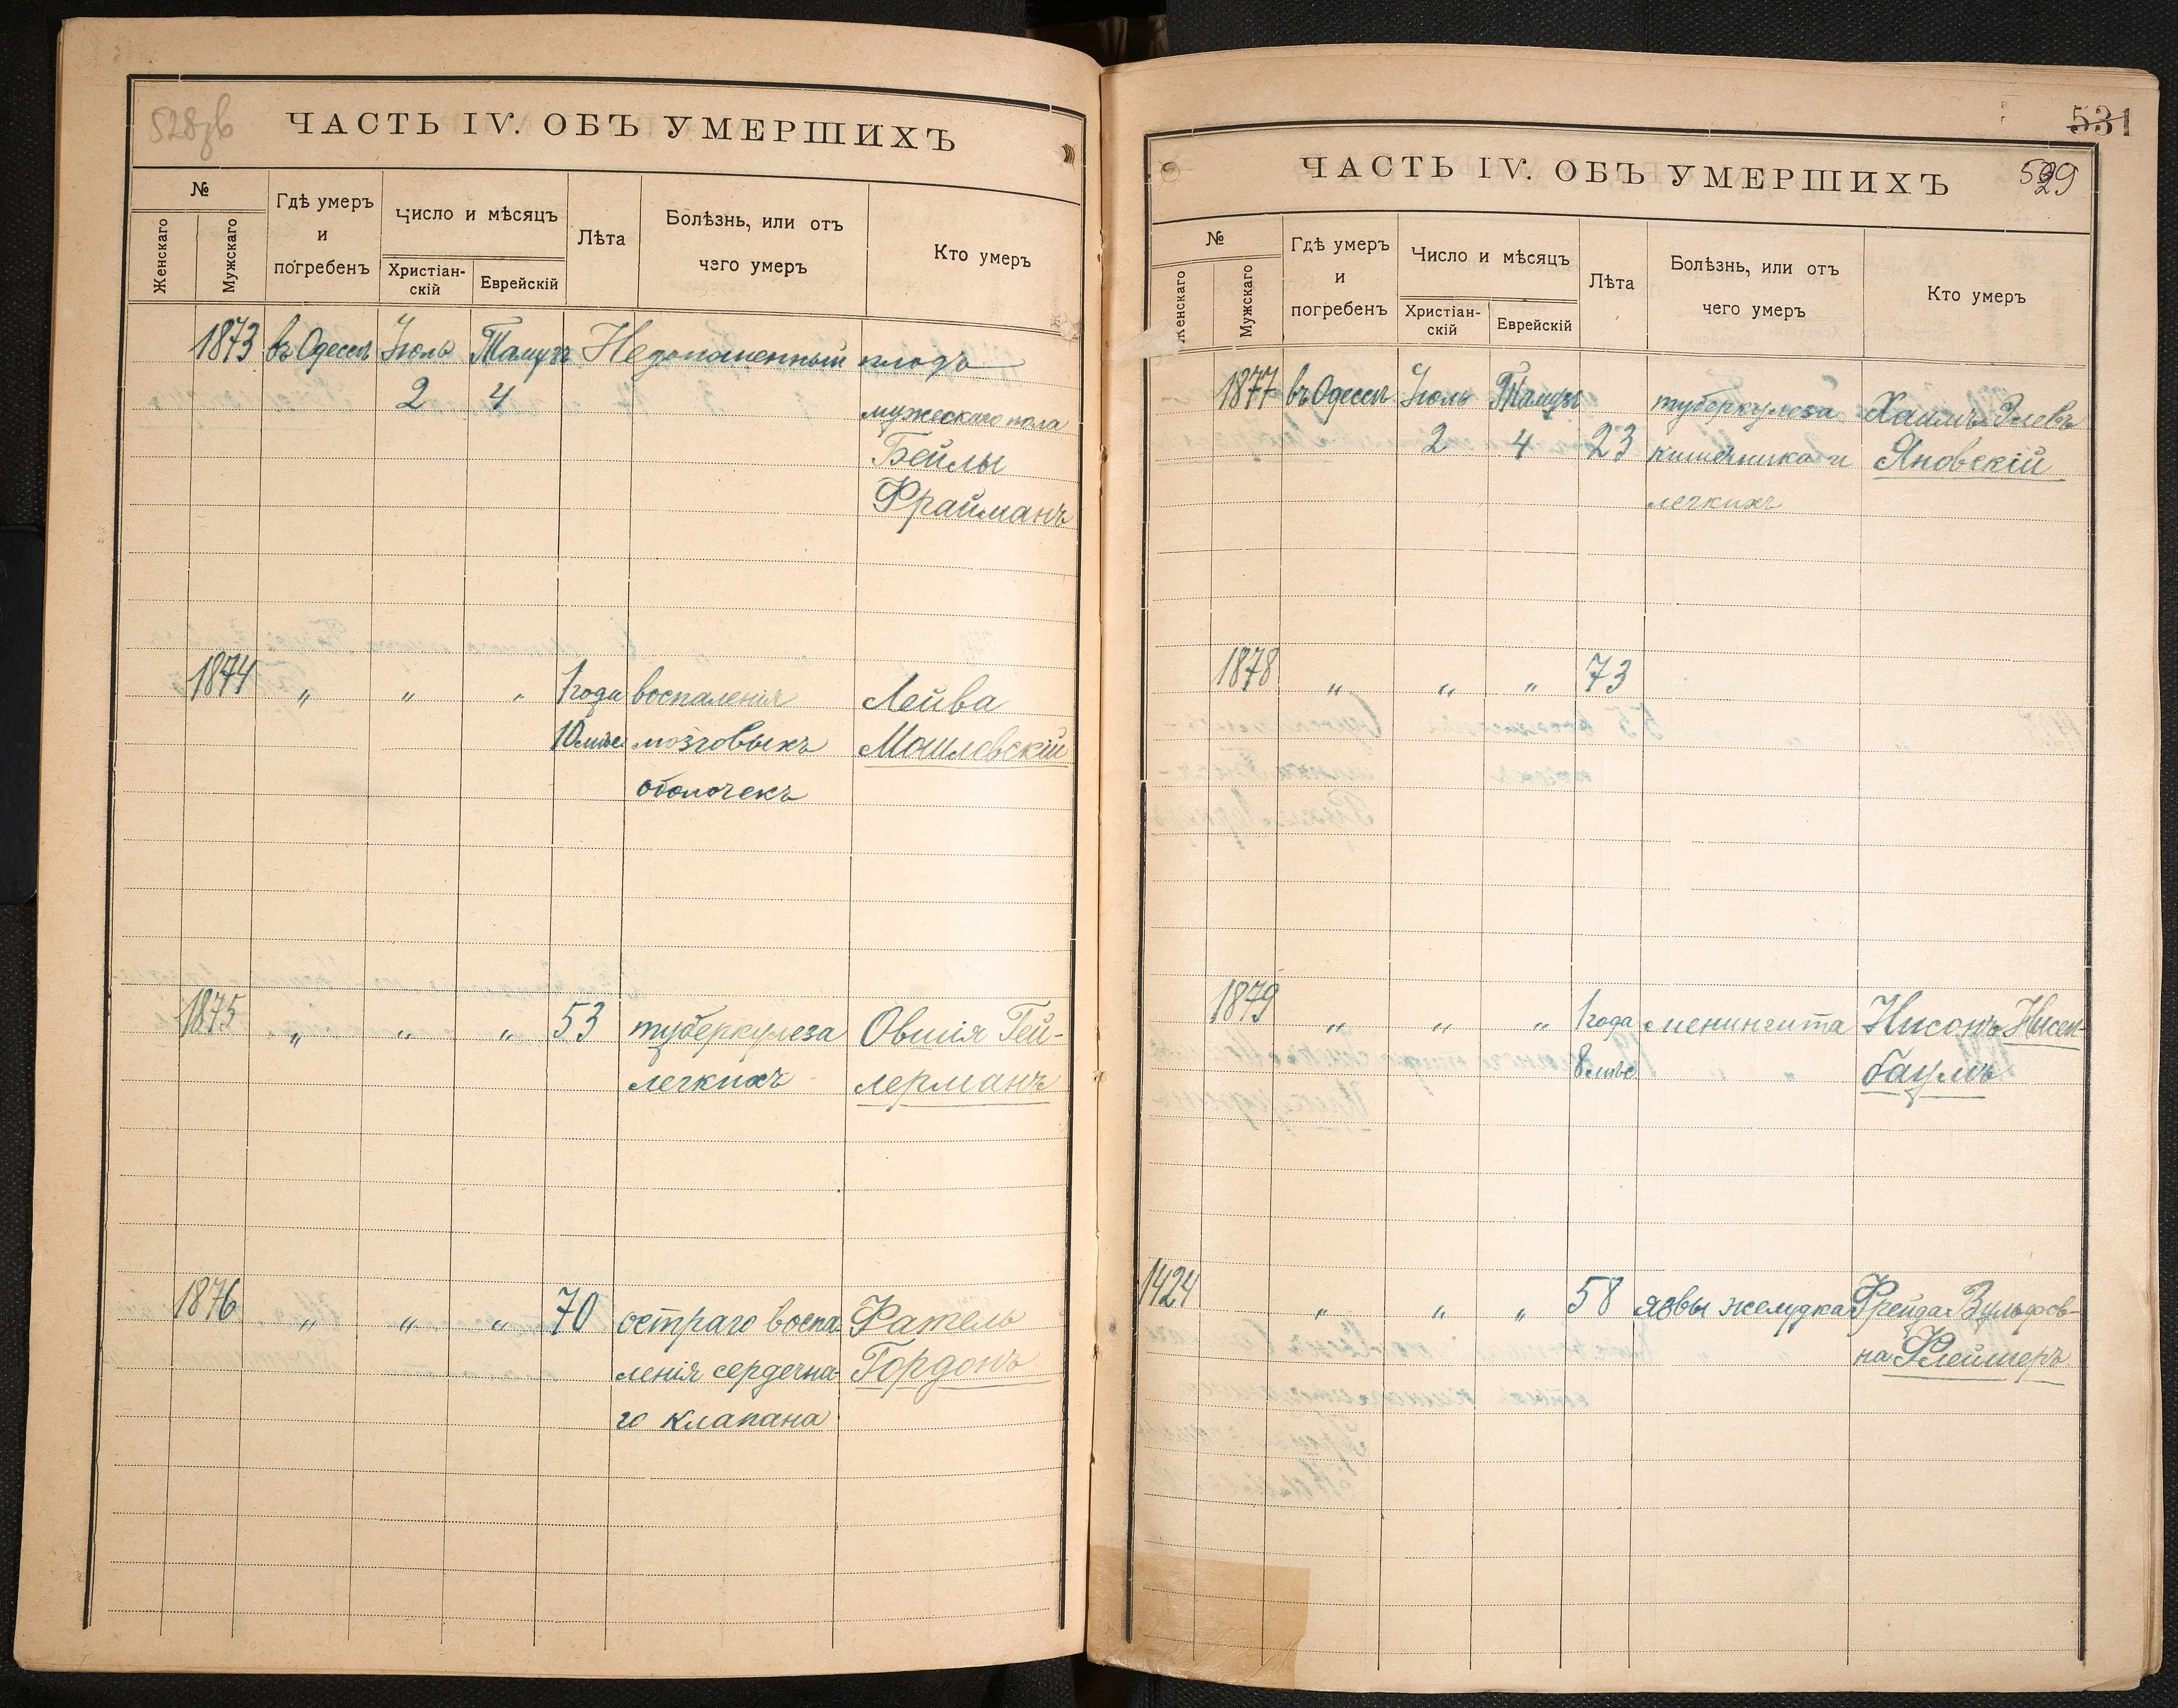 528зв
ЧАСТЬ IV. ОБЪ УМЕРШИХЪ
№
Женскаго
Мужскаго
Гдѣ умеръ
и
погребенъ
Число и мѣсяцъ
Христіан-
скій
Еврейскій
Лѣта
Болѣзнь, или отъ
чего умеръ
Кто умеръ
1873 въ Одессѣ Іюль Тамузъ Недоношенный плодъ
2 4 мужескаго пола
Бейлы
Фрайманъ
1874 " " " 1 года воспаленія Лейва
10 мѣс мозговыхъ Могилевскій
оболочекъ
1875 " " " 53 туберкулеза Овшія Гей-
легкихъ лерманъ
1876 " " " 70 остраго воспа Фатель
ленія сердечна Гордонъ
го клапана
531
529
ЧАСТЬ IV. ОБЪ УМЕРШИХЪ
№
Женскаго
Мужскаго
Гдѣ умеръ
и
погребенъ
Число и мѣсяцъ
Христіан-
скій
Еврейскій
Лѣта
Болѣзнь, или отъ
чего умеръ
Кто умеръ
1877 въ Одессѣ Іюль Тамузъ туберкулеза Хаимъ
2 4 23 кишечника и Яновскій
легкихъ
1878 " " " 73
1879 " " " 1 года менингита Нисонъ Нисен-
8 мѣс баумъ
1424 " " " 58 язвы желудка Фрейда Вульфов-
на Флейшеръ